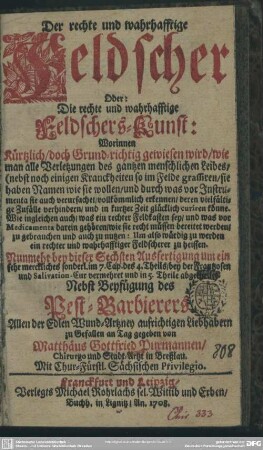 Der rechte und wahrhafftige
Feldscher
Oder:
Die rechte und wahrhafftige
Feldschers-Kunst:
Worinnen
Kürtzlich/doch Grund-richtig gewiesen wird/wie
man alle Verletzungen des gantzen menschlichen Leibes/
(nebst noch einigen Kranckheiten so im Felde grassiren/sie
haben Namen wie sie wollen/und durch was vor Instru-
menta sie auch verursachet/vollkömmlich erkennen/deren vielfältí-
ge Zufälle verhindern/und in kurtzer Zeit glücklich curiren könne.
Wie ingleichen auch/was ein rechter Feldkasten sey/und was vor
Medicamenta darein gehören/wie sie recht müssen bereitet werden/
zu gebrauchen und auch zu nutzen: Um also würdig zu werden
ein rechter und wahrhafftiger Feldscherer zu heissen.
Nunmehr bey dieser Sechsten Ausfertigung um ein
sehr merckliches sonderl. im 7. Cap. des 4. Theils/bey der Frantzosen
und Salivation-Cur vermehret und in 5. Theile
Nebst Beyfügung des
Pest-Barbierers
Allen der Edlen Wund-Artzney aufrichtigen Liebhabern
zu Gefallen an Tag gegeben von
Matthäus Gottfried Purmannen/
Chirurgo und Stadt-Artzt in Breßlau.
Mit Chur-Fürstl. Sächsischen Privilegio.
808
Franckfurt und Leipzig/
Verlegts Michael Rohrlachs sel. Wittib und Erben/
Buchh. in Lignitz; An. 1708.
333